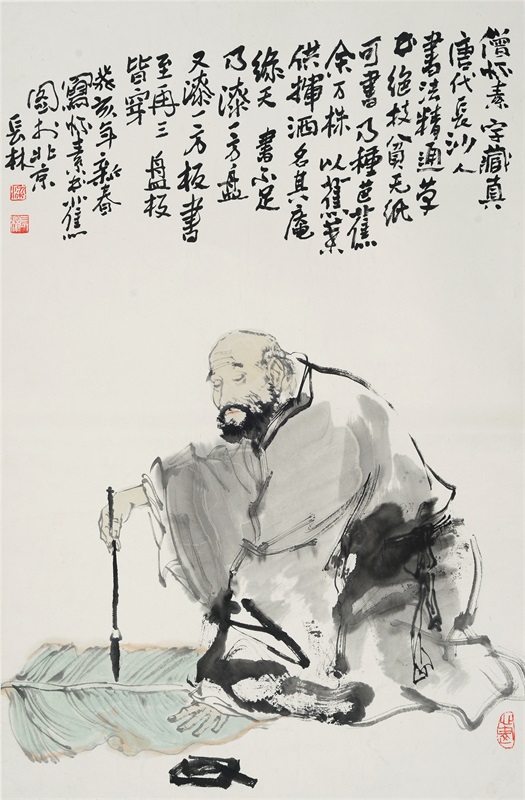 僧怀素字藏真
唐代長沙人
書法精通草
书絶技貧无纸
可書乃種芭蕉
余万株以蕉葉
供揮洒名其庵
绿天書不足
乃漆一方盘
又漆一方板書
至再三盘板
皆穿
癸亥年新春
寫怀素书蕉
图于北京
岳林